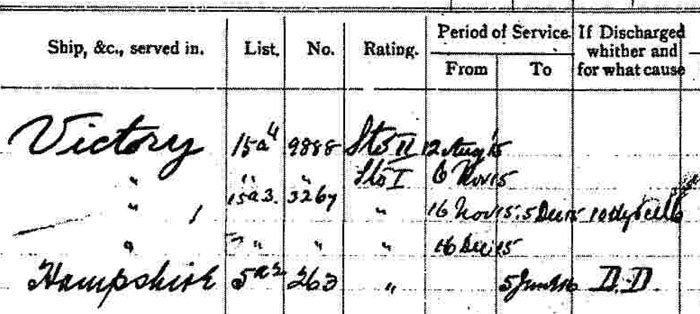 Period of Service. If Discharged
Ship, &c., served in. List. No. Rating. whether and
From To for what cause
Victory 15a4 9888 Sto II 12 Aug 15
" " " Sto I 6 Nov 15
" 1 15a3. 3267 " 16 Nov 15. 5 Dec 15 10
" " " " 16 Dec 15
Hampshire 5a2 263 " 5 June 16 D.D.